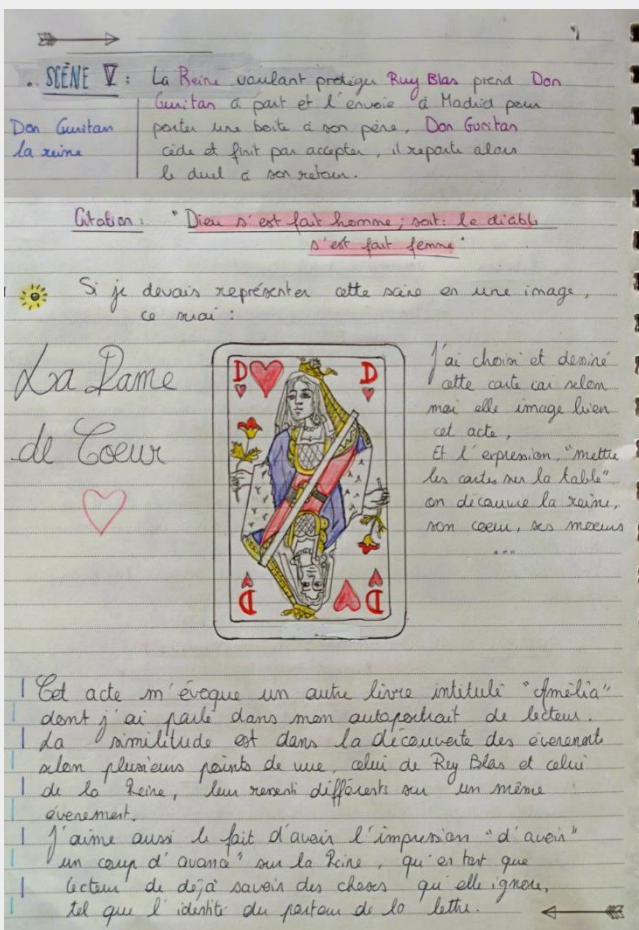 . SCÈNE V : La Reine voulant protéger Ruy Blas prend Don
Guritan à part et l'envoie à Madrid pour
Don Guritan
porter une boite à son père, Don Guritan
la reine
cède et finit par accepter, il reporte alors
le duel à son retour.
Citation : "Dieu s'est fait homme ; soit : le diable
s'est fait femme"
Si je devais représenter cette scène en une image,
ce serai :
La Dame
de Coeur
D D
D D
J'ai choisi et dessiné
cette carte car selon
moi elle image bien
cet acte,
Et l'expression, "mettre
les cartes sur la table"
on découvre la reine,
son coeur, ses moeurs
...
Cet acte m'évoque un autre livre intitulé "Amélia"
dont j'ai parlé dans mon autoportrait de lecteur.
La similitude est dans la découverte des évenements
selon plusieurs points de vue, celui de Rey Blas et celui
de la Reine, leur ressenti différents sur un même
évenement.
J'aime aussi le fait d'avoir l'impression "d'avoir"
un coup d'avance" sur la Reine, qu'en tant que
lecteur de déjà savoir des choses qu'elle ignore,
tel que l'identité du porteur de la lettre.